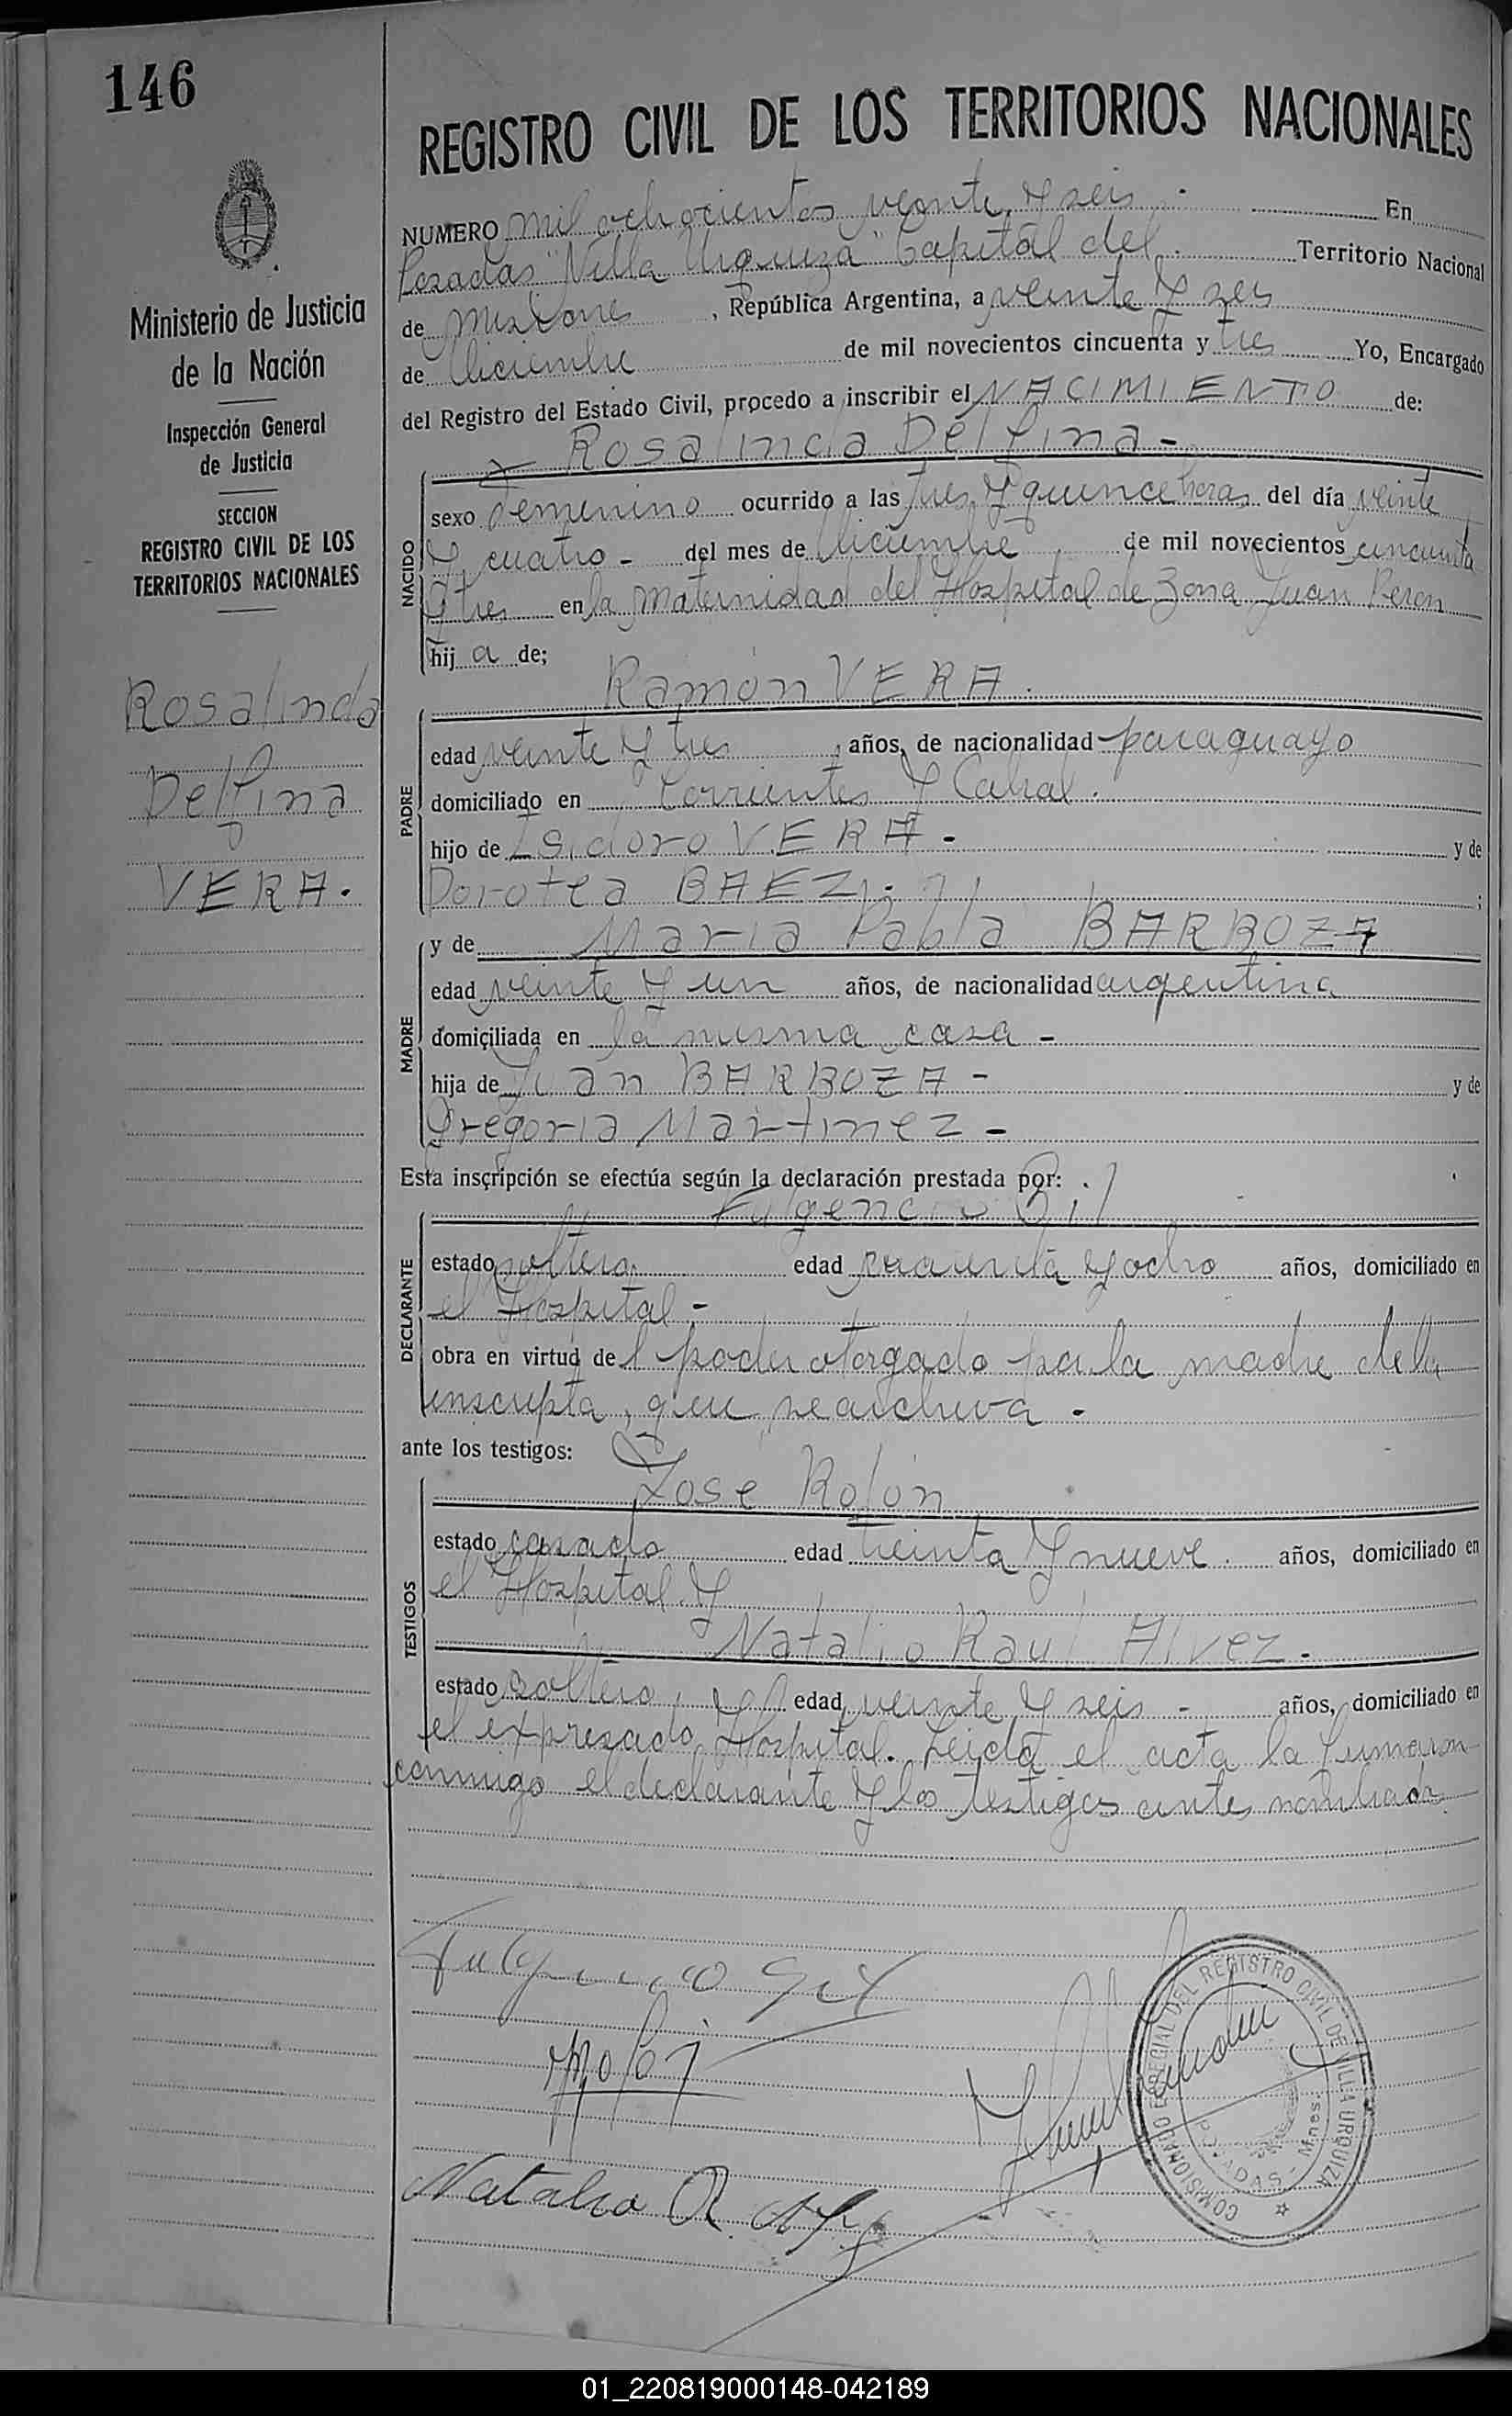 146
REGISTRO CIVIL DE LOS TERRITORIOS NACIONALES
NUMERO mil ochocientos veinte y seis.- En
Posadas "Villa Urquiza" Capital del. Territorio Nacional
de Misiones, República Argentina, a veinte y seis
de Diciembre de mil novecientos cincuenta y tres Yo, Encargado
del Registro del Estado Civil, procedo a inscribir el NACIMIENTO de:
Rosalinda Delfina-
NACIDO
sexo femenino ocurrido a las tres y quince horas del día veinte
y cuatro- del mes de Diciembre de mil novecientos cincuenta
y tres en la Maternidad del Hospital de Zona Juan Peron
hij a de;
Ramón VERA.
PADRE
edad veinte y tres, años, de nacionalidad paraguayo
domiciliado en Corrientes y Cabral.
hijo de Isidoro VERA- y de
Dorotea BAEZ.- ;
MADRE
y de Maria Pabla BARBOZA
edad veinte y un años, de nacionalidad argentina
domiciliada en la misma casa-
hija de Juan BARBOZA- y de
Gregoria Martinez-
Esta inscripción se efectúa según la declaración prestada por:
Fulgencio Gil
DECLARANTE
estado soltero edad cuarenta y ocho años, domiciliado en
el Hospital-
obra en virtud de l poder otorgado por la madre de la
inscripta, que se archiva-
ante los testigos:
Jose Rolón
TESTIGOS
estado casado edad treinta y nueve. años, domiciliado en
el Hospital y
Natalio Raul Alvez.
estado soltero, edad veinte y seis- años, domiciliado en
el expresado Hospital. Leida el acta la firmaron
conmigo el declarante y los testigos antes nombrados
Fulgencio Gil
Natalio R. Alvez
COMISIONADO ESPECIAL DEL REGISTRO CIVIL DE VILLA URQUIZA
POSADAS - Mnes.
Ministerio de Justicia
de la Nación
Inspección General
de Justicia
SECCION
REGISTRO CIVIL DE LOS
TERRITORIOS NACIONALES
Rosalinda
Delfina
VERA.
01_220819000148-042189